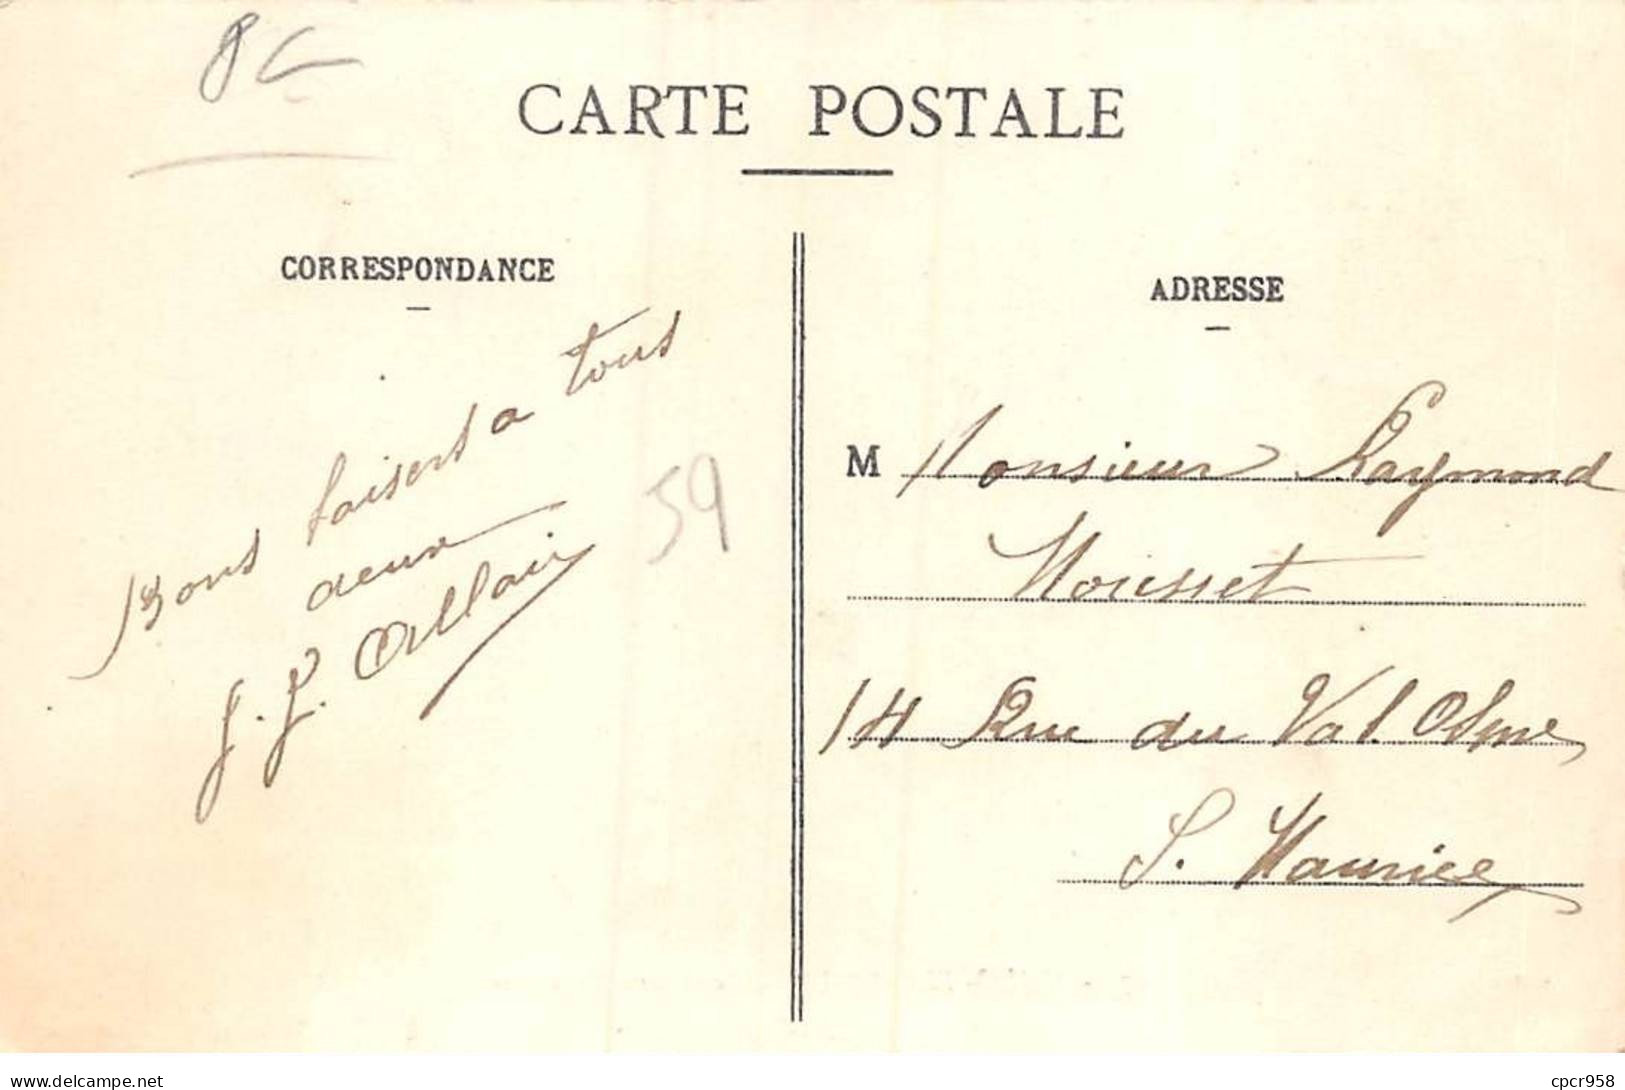 CARTE POSTALE
CORRESPONDANCE
Bons baisers a tous
deux
J. J. Allain
59
ADRESSE
M Monsieur Raymond
Mousset
14 Rue du Val Osne
S. Maurice
delcampe.net
cpcr958